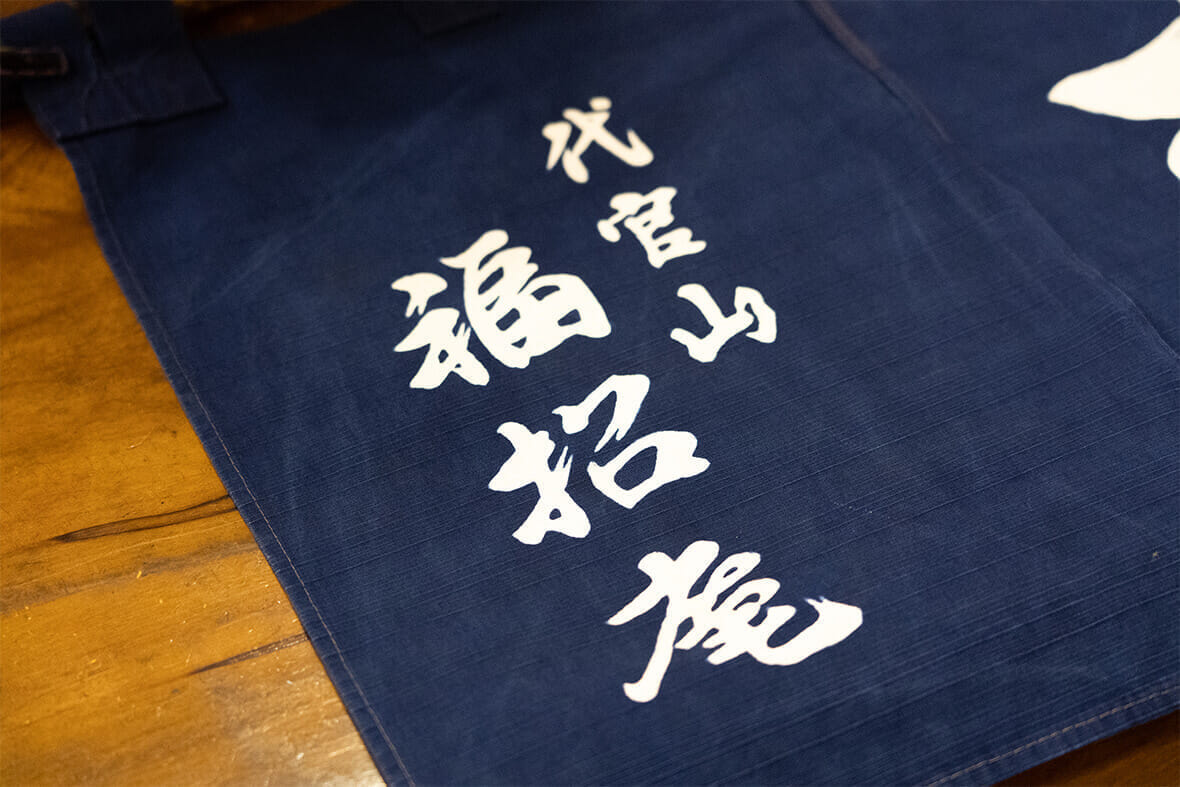 代官山
福招尾